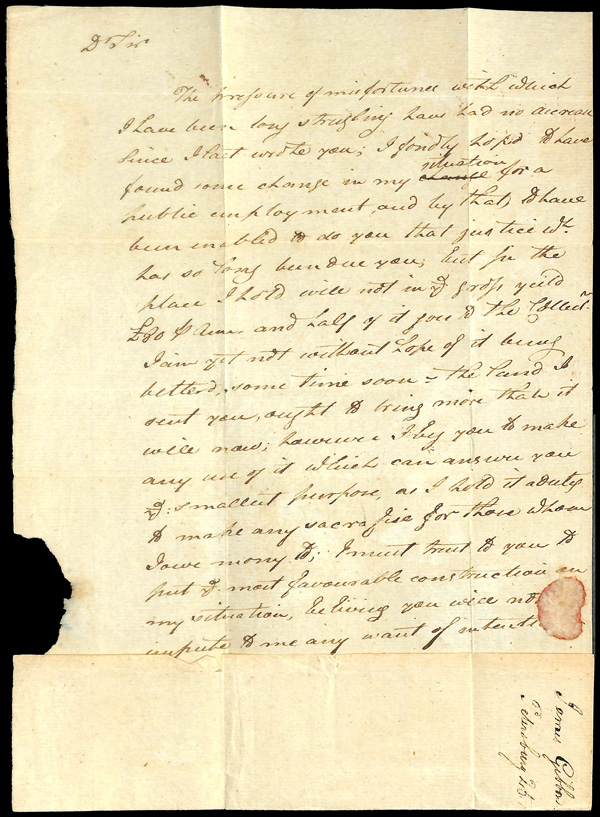 Dr Sir
The pressure of misfortunes with which
I have been long strugling have had no decrease
since I last wrote you; I fondly hop'd to have
found some change in my
situation
change for a
public employment, and by that, to have
been enabled to do you that justice wh.
has so long been due you; but Sir the
place I hold will not in ye gross yeild
£80 P Ann. and half of it goes to the Collectr.
I am yet not without hope of it being
betterd, some time soon - the land I
sent you, ought to bring more than it
will now; however I beg you to make
any use of it which can answer you
ye smallest purpose, as I hold it a duty
to make any sacrafise for those whom
I owe mony to; I must trust to you to
put ye most favourable construction on
my situation, beliving you will not
impute to me any want of intenti
James Gibbon
Petersburg 25